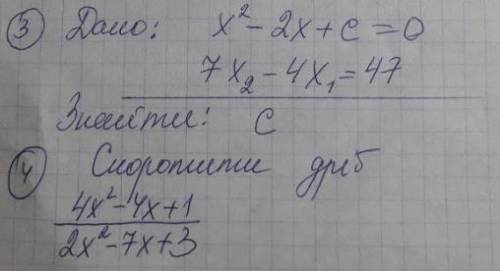 3 Дано: x² - 2x + c = 0
7x₂ - 4x₁ = 47
Знайти: c
4 Скоротити дріб
4x² - 4x + 1
2x² - 7x + 3